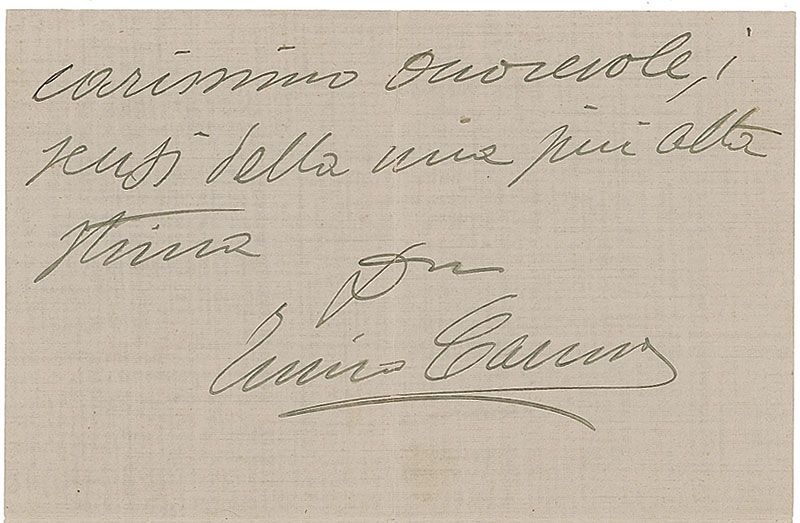 carissimo onorevole, i
sensi della mia più alta
stima
Enrico Caruso